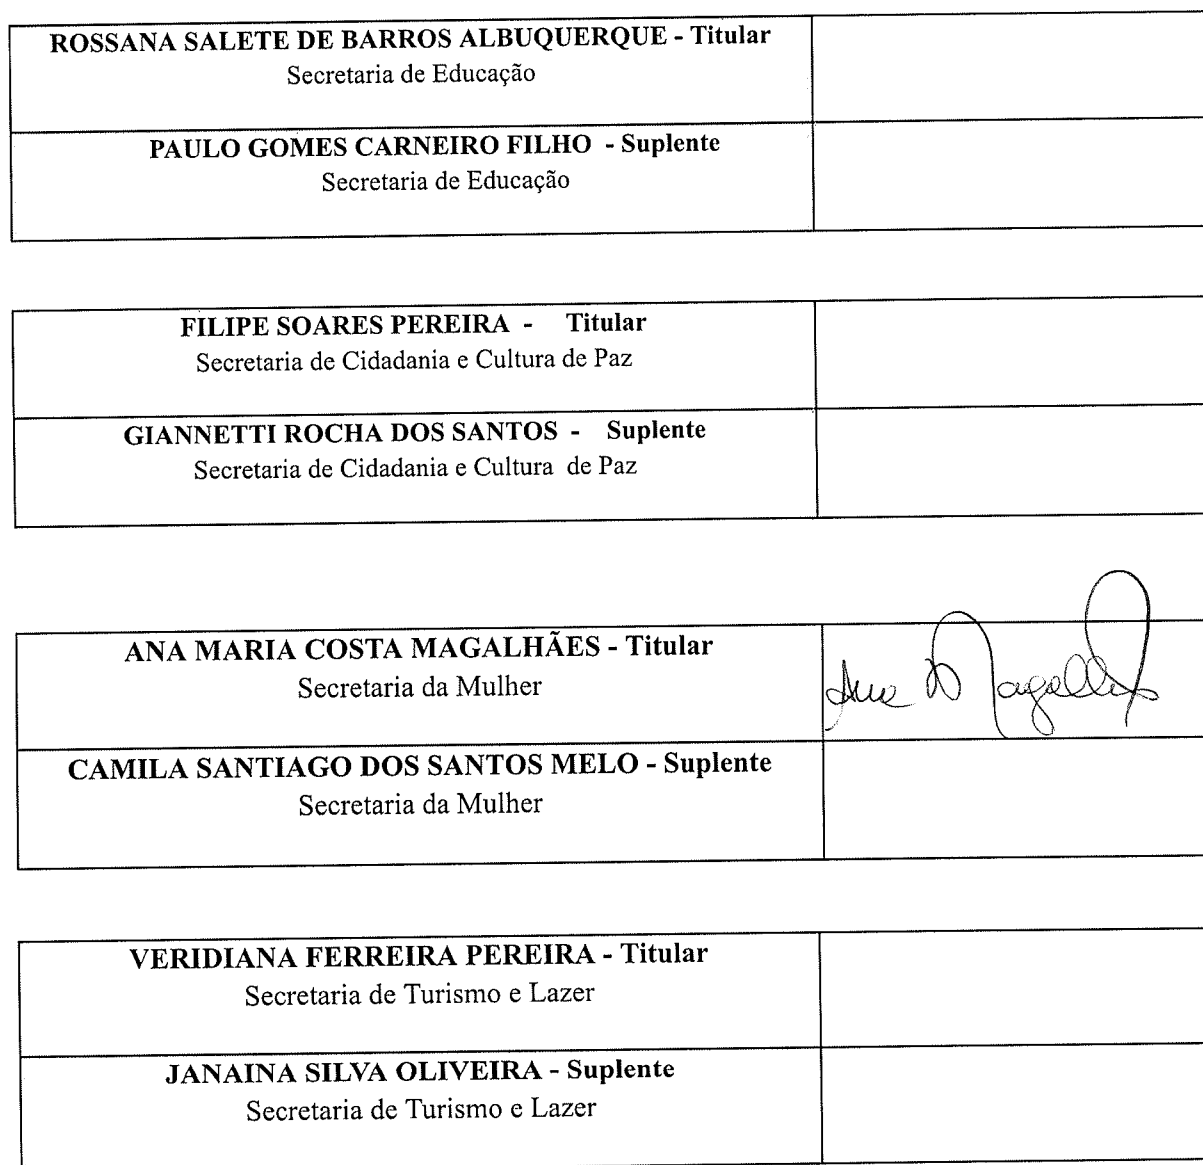 ROSSANA SALETE DE BARROS ALBUQUERQUE - Titular
Secretaria de Educação
PAULO GOMES CARNEIRO FILHO - Suplente
Secretaria de Educação
FILIPE SOARES PEREIRA - Titular
Secretaria de Cidadania e Cultura de Paz
GIANNETTI ROCHA DOS SANTOS - Suplente
Secretaria de Cidadania e Cultura de Paz
ANA MARIA COSTA MAGALHÃES - Titular
Secretaria da Mulher
Ana
CAMILA SANTIAGO DOS SANTOS MELO - Suplente
Secretaria da Mulher
VERIDIANA FERREIRA PEREIRA - Titular
Secretaria de Turismo e Lazer
JANAINA SILVA OLIVEIRA - Suplente
Secretaria de Turismo e Lazer